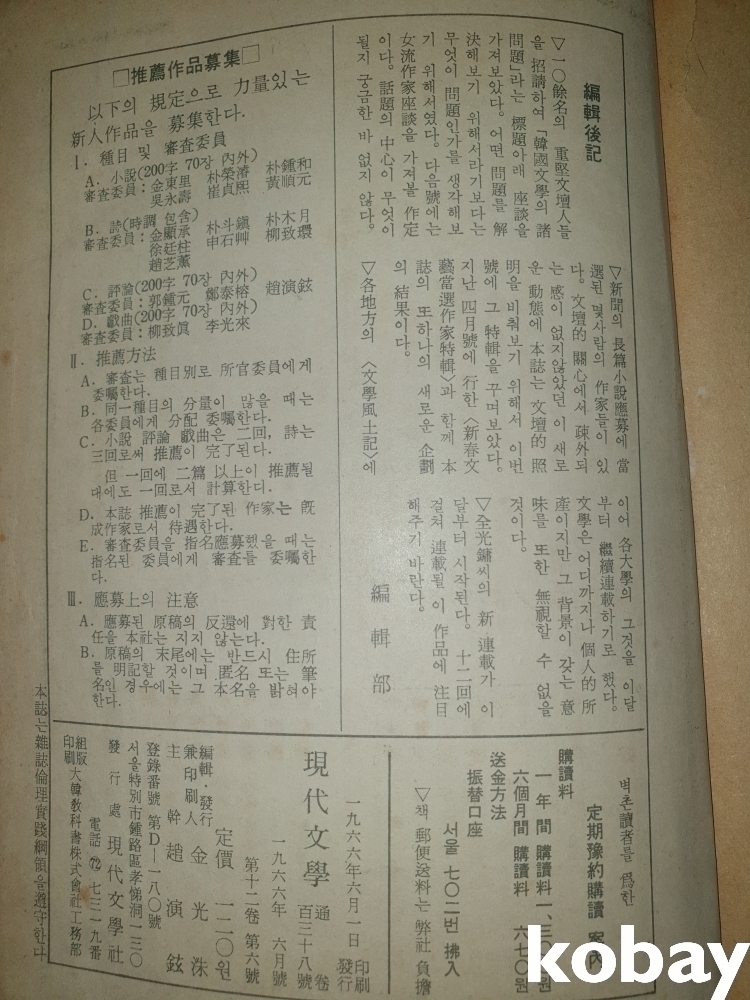 編輯後記
▽一〇餘名의 重堅文壇人들
을 招請하여「韓國文學의 諸
問題」라는 標題아래 座談을
가져보았다。어떤 問題를 解
決해보기 위해서라기보다는
무엇이 問題인가를 생각해보
기 위해서였다。다음號에는
女流作家座談을 가져볼 作定
이다。話題의 中心이 무엇이
될지 궁금한 바 없지 않다。
▽新聞의 長篇小說應募에 當
選된 몇사람의 作家들이 있
다。文壇的 關心에서 疎外되
는 感이 없지않았던 이 새로
운 動態에 本誌는 文壇的 照
明을 비춰보기 위해서 이번
號에 그 特輯을 꾸며보았다。
지난 四月號에 行한〈新春文
藝當選作家特輯〉과 함께 本
誌의 또하나의 새로운 企劃
의 結果이다。
▽各地方의 〈文學風土記〉에
이어 各大學의 그것을 이달
부터 繼續連載하기로 했다。
文學은 어디까지나 個人的 所
產이지만 그 背景이 갖는 意
味를 또한 無視할 수 없을
것이다。
▽全光鏞씨의 新連載가 이
달부터 시작된다。十二回에
걸쳐 連載될 이 作品에 注目
해주기 바란다。
編輯部
□推薦作品募集□
以下의 規定으로 力量있는
新人作品을 募集한다.
Ⅰ. 種目 및 審査委員
A. 小說(200字 70장 內外)
審査委員：金東里 朴榮濬 朴鍾和
吳永壽 崔貞熙 黃順元
B. 詩(時調 包含)
審査委員：金顯承 朴斗鎭 朴木月
徐廷柱 申石艸 柳致環
趙芝薰
C. 評論(200字 70장 內外)
審査委員：郭鍾元 鄭泰榕 趙演鉉
D. 戱曲(200字 70장 內外)
審査委員：柳致眞 李光來
Ⅱ. 推薦方法
A. 審査는 種目別로 所官委員에게
委囑한다.
B. 同一種目의 分量이 많을 때는
各委員에게 分配 委囑한다.
C. 小說 評論 戱曲은 二回, 詩는
三回로써 推薦이 完了된다.
但 一回에 二篇 以上이 推薦될
대에도 一回로서 計算한다.
D. 本誌 推薦이 完了된 作家는 旣
成作家로서 待遇한다.
E. 審査委員을 指名應募했을 때는
指名된 委員에게 審査를 委囑한
다.
Ⅲ. 應募上의 注意
A. 應募된 原稿의 反還에 對한 責
任을 本社는 지지 않는다.
B. 原稿의 末尾에는 반드시 住所
를 明記할 것이며 匿名 또는 筆
名인 경우에는 그 本名을 밝혀야
한다.
벽촌讀者를 爲한
定期豫約購讀 案內
購讀料
一年間 購讀料 一、三〇〇원
六個月間 購讀料 六七〇원
送金方法
振替口座
서울 七〇二번 拂入
▽책 郵便送料는 弊社 負擔
一九六六年六月一日 印刷 發行
現代文學 通卷 百三十八號
一九六六年 六月號
第十二卷 第六號
定價 一二〇원
編輯・發行
兼印刷人 金光洙
主幹 趙演鉉
登錄番號 第D—一八〇號
서울特別市鍾路區孝悌洞一三〇
發行處 現代文學社
電話 ㊆ 七三一九番
組版
印刷 大韓敎科書株式會社工務部
本誌는 雜誌倫理實踐綱領을 遵守한다
kobay